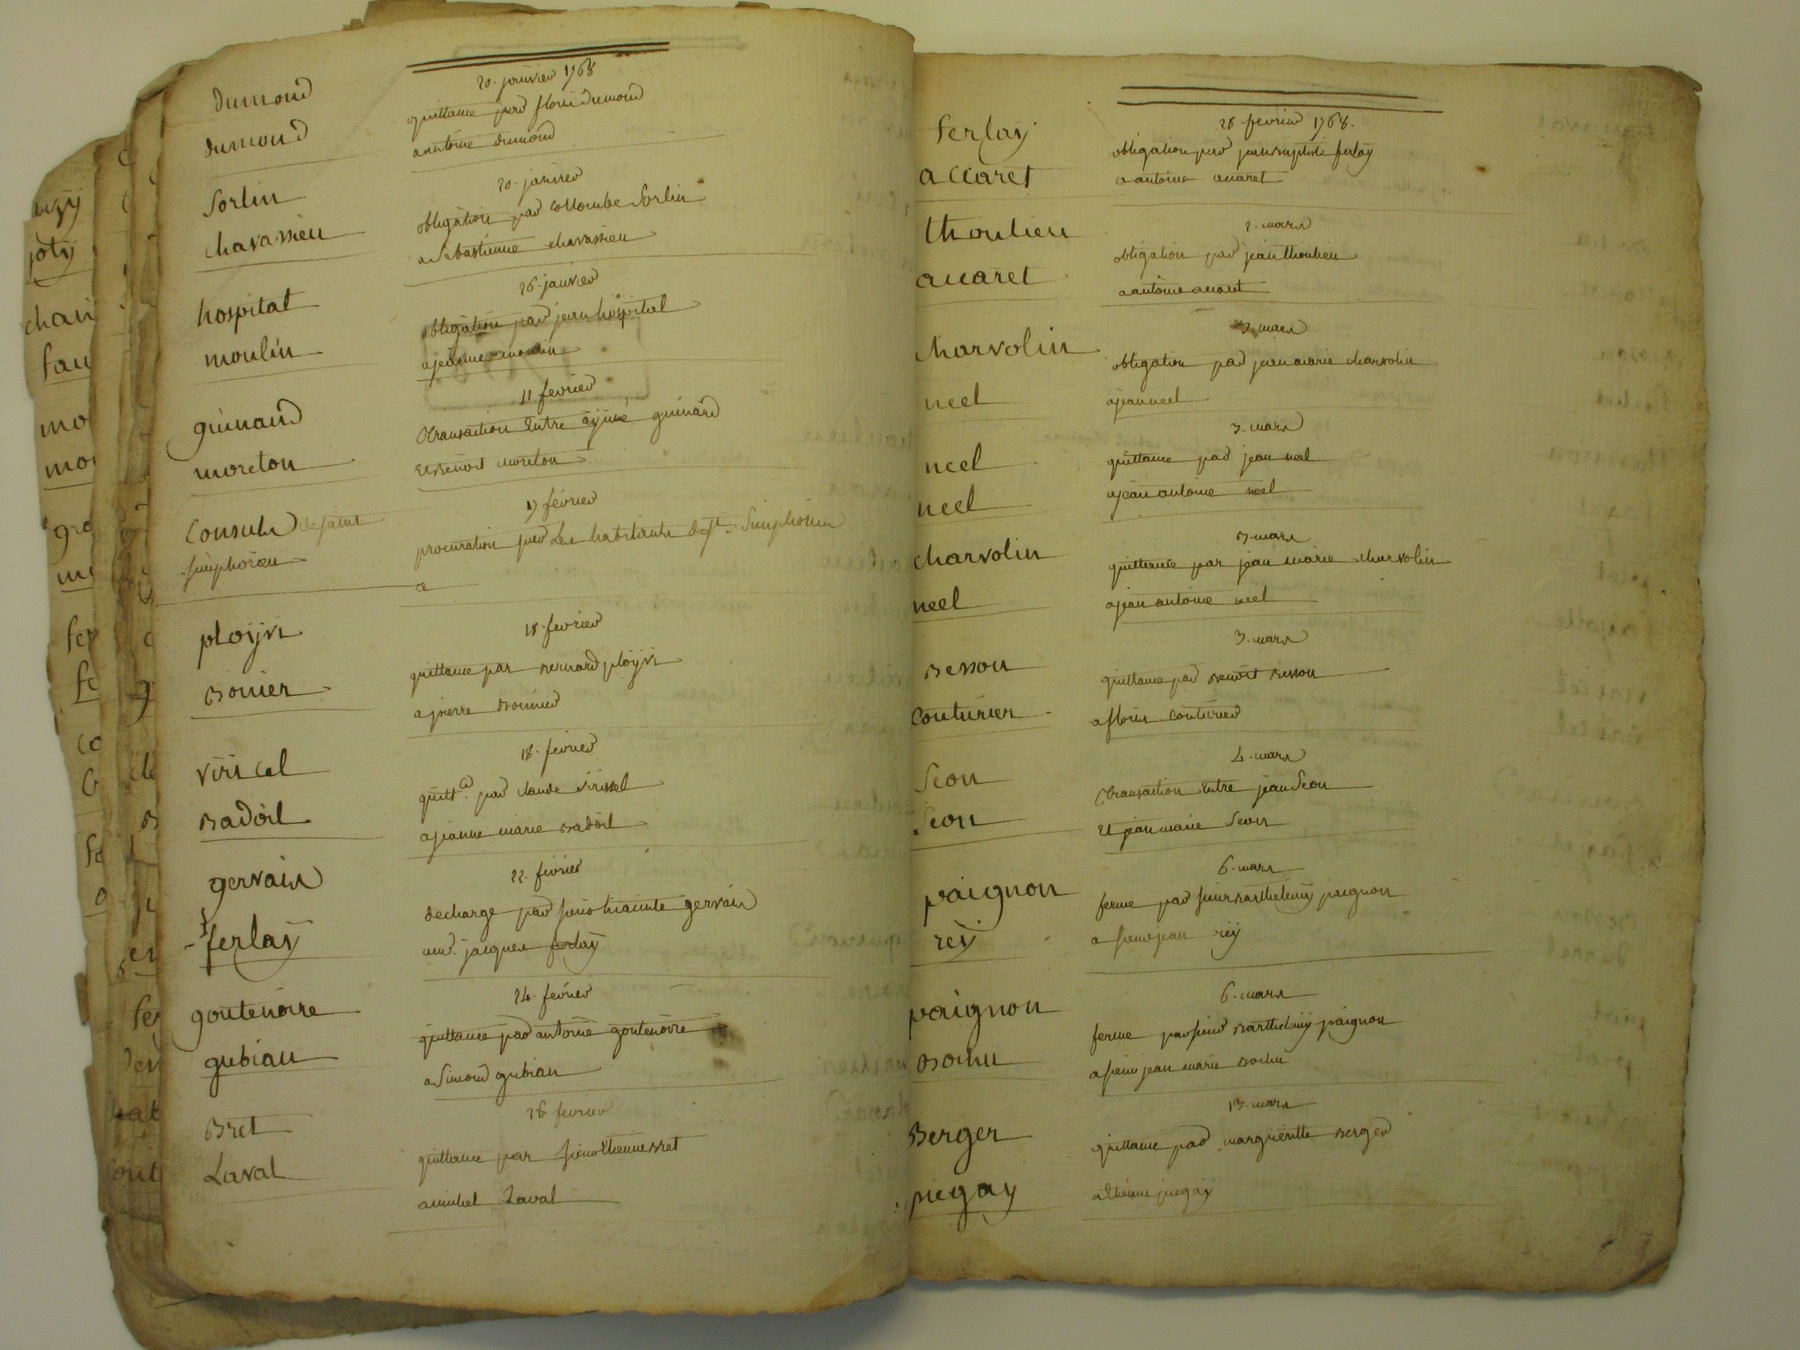 dumond
dumond
20. janvier 1768
quittance par fleurie dumond
a antoine dumond
sorlin
chavassieu
20. janvier
obligation par collombe sorlin
a sebastienne chavassieu
hospital
moulin
26. janvier
obligation par jean hospital
a jeanne moulin
guinand
moreton
11 fevrier
transaction entre aymé guinand
et benoit moreton
Consuls de saint
simphorien
17 février
procuration par les habitants de st. simphorien
a
ployn
bonier
18. fevrier
quittance par bernard ployn
a pierre bonnier
viricel
badoil
18. fevrier
quittce. par claude viricel
a jeanne marie badoil
gervais
ferlaÿ
22. février
decharge par sieur hiacinte gervais
au sr. jacques ferlaÿ
goutenoire
gubian
24. fevrier
quittance par antoine goutenoire
a simond gubian
Bret
Laval
26 fevrier
quittance par sieur etienne bret
a michel Laval
ferlaÿ
accaret
28 fevrier 1768.
obligation par jean baptiste ferlaÿ
a antoine accaret
thoulieu
accaret
2. mars
obligation par jean thoulieu
a antoine accaret
charvolin
neel
3. mars
obligation par jean marie charvolin
a jean neel
neel
neel
3. mars
quittance par jean neel
a jean antoine neel
charvolin
neel
3. mars
quittance par jean marie charvolin
a jean antoine neel
besson
couturier
3. mars
quittance par benoit besson
a fleurie couturier
Seon
Seon
4. mars
transaction entre jean Seon
et jean marie Seon
paignon
reÿ
6. mars
ferme par sieur barthelemÿ paignon
a sieur jean reÿ
paignon
bochu
6. mars
ferme par sieur barthelemÿ paignon
a sieur jean marie bochu
Berger
piegay
13. mars
quittance par margueritte berger
a etienne piegaÿ